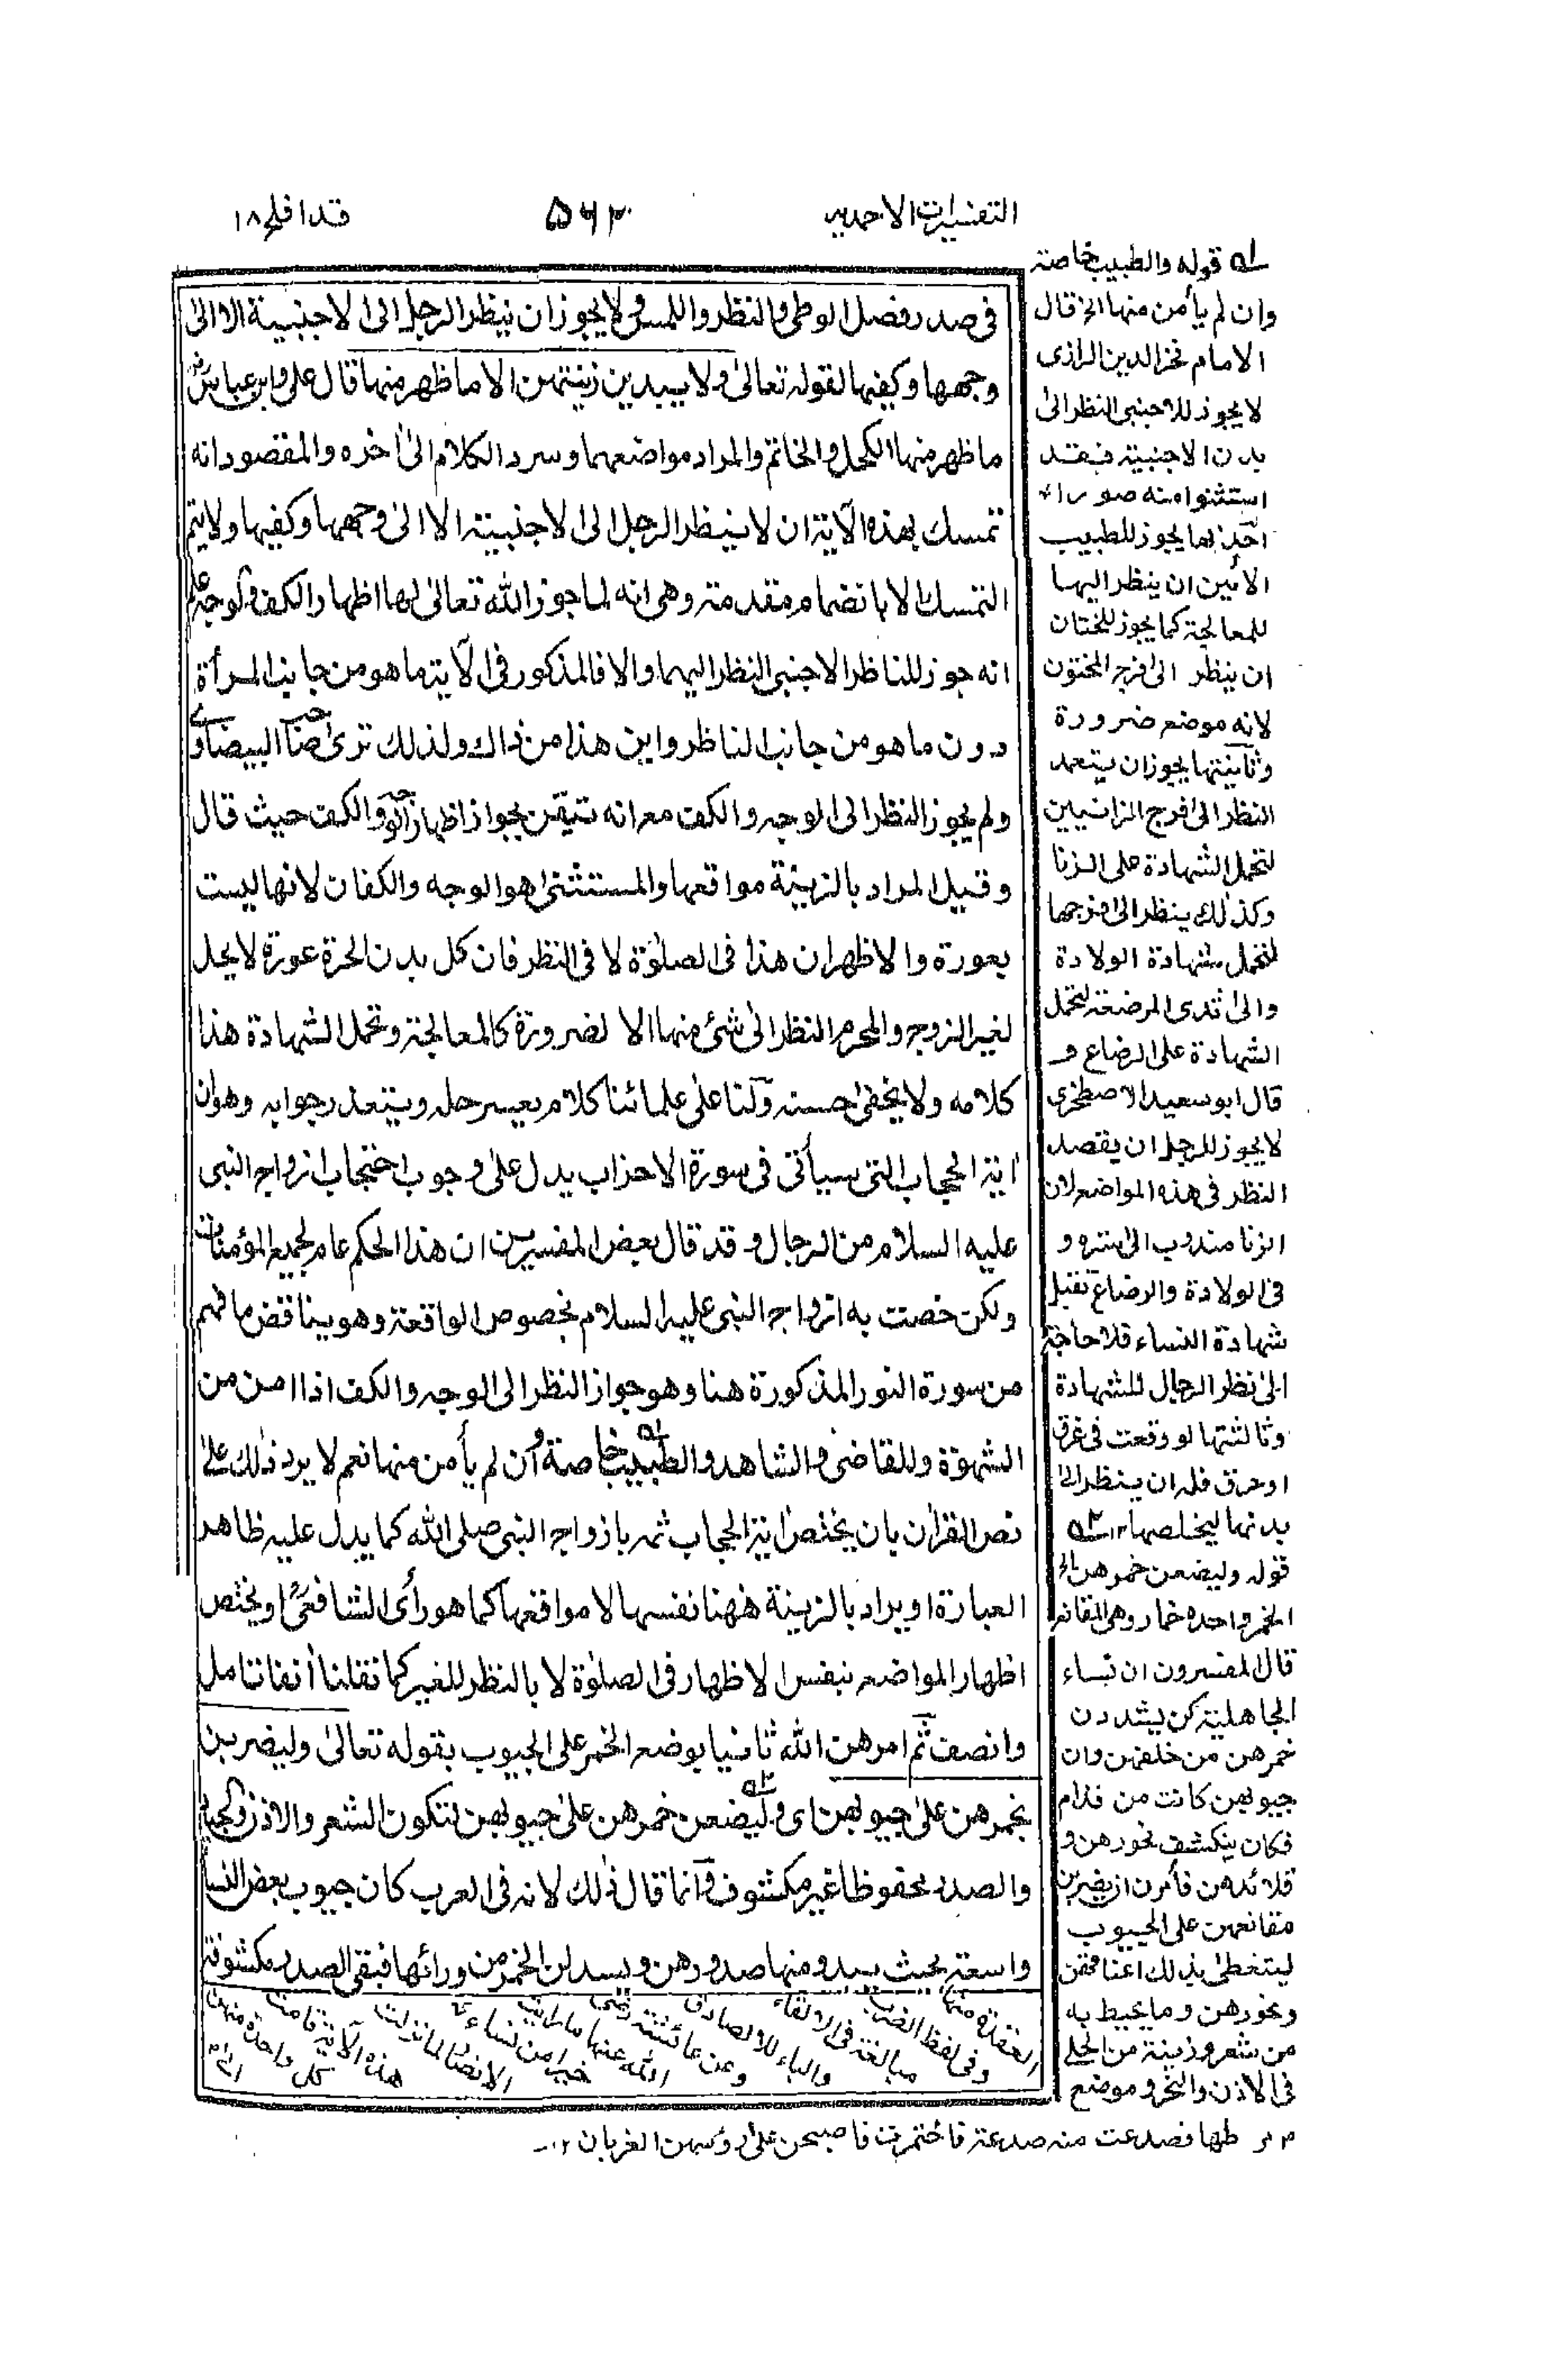 التفسيرات الاحمديه ۵۶۲ قدافلح ۱۸
فى صدر فصل الوطى والنظر واللمس ولا يجوز ان ينظر الرجل الى الاجنبية الا الى
وجهها وكفيها لقوله تعالى ولا يبدين زينتهن الا ما ظهر منها قال على وابن عباس رض
ما ظهر منها الكحل والخاتم والمراد مواضعهما وسرد الكلام الى أخره والمقصود انه
تمسك بهذه الآية ان لا ينظر الرجل الى الاجنبية الا الى وجهها وكفيها ولا يتم
التمسك الا بانضمام مقدمة وهى انه لما جوز الله تعالى لها اظهار الكف والوجه علم
انه جوز للناظر الاجنبى النظر اليهما والا فالمذكور فى الآية ما هو من جانب المرأة
دون ما هو من جانب الناظر واين هذا من ذاك ولذلك ترى صاحب البيضاوى
ولم يجوز النظر الى الوجه والكف مع انه تيقن بجواز اظهار الوجه والكف حيث قال
وقيل المراد بالزينة مواقعها والمستثنى هو الوجه والكفان لانها ليست
بعورة والاظهر ان هذا فى الصلوة لا فى النظر فان كل بدن الحرة عورة لا يحل
لغير الزوج والمحرم النظر الى شئ منها الا لضرورة كالمعالجة وتحمل الشهادة هذا
كلامه ولا يخفى حسنه ولنا على علمائنا كلام يعسر حله ويتعذر جوابه وهو ان
اية الحجاب التى سيأتى فى سورة الاحزاب يدل على وجوب احتجاب ازواج النبى
عليه السلام من الرجال وقد قال بعض المفسرين ان هذا الحكم عام لجميع المؤمنات
ولكن خصت به ازواج النبى عليه السلام بخصوص الواقعة وهو يناقض ما فهم
من سورة النور المذكورة هنا وهو جواز النظر الى الوجه والكف اذا امن من
الشهوة وللقاضى والشاهد والطبيب خاصة وان لم يأمن منها نعم لا يرد ذلك على
نص القرأن بان يختص اية الحجاب ثمه بازواج النبى صلى الله كما يدل عليه ظاهر
العبارة او يراد بالزينة ههنا نفسها لا مواقعها كما هو رأى الشافعى او يختص
اظهار المواضع بنفس الاظهار فى الصلوة لا بالنظر للغير كما نقلنا أنفا تامل
وانصف ثم امرهن الله ثانيا بوضع الخمر على الجيوب بقوله تعالى وليضربن
بخمرهن على جيوبهن اى وليضعن خمرهن على جيوبهن لتكون الشعر والاذن والجيد
والصدر محفوظا غير مكشوف وانما قال ذلك لانه فى العرب كان جيوب بعض النساء
واسعة بحيث يبدو منها صدورهن ويسدلن الخمر من ورائها فبقى الصدر مكشوفة
۱ه قوله والطبيب خاصة
وان لم يأمن منها الخ قال
الامام فخر الدين الرازى
لا يجوز للاجنبى النظر الى
بدن الاجنبية فقد
استثنوا منه صورا
احدىها يجوز للطبيب
الامين ان ينظر اليها
للمعالجة كما يجوز للختان
ان ينظر الى فرج المختون
لانه موضع ضرورة
وثانيتها يجوز ان يتعمد
النظر الى فرج الزانيين
لتحمل الشهادة على الزنا
وكذلك ينظر الى فرجها
لتحمل شهادة الولادة
والى ثدى المرضعة لتحمل
الشهادة على الرضاع و
قال ابو سعيد الاصطخرى
لا يجوز للرجل ان يقصد
النظر فى هذه المواضع لان
الزنا مندوب الى ستره و
فى الولادة والرضاع تقبل
شهادة النساء فلا حاجة
الى نظر الرجال للشهادة
وثالثتها لو وقعت فى غرق
او حرق فله ان ينظر الى
بدنها ليخلصها ۱۲ ۲ه
قوله وليضعن خمرهن الخ
الخمر واحده خمار وهى المقانع
قال المفسرون ان نساء
الجاهلية كن يشددن
خمرهن من خلفهن وان
جيوبهن كانت من قدام
فكان ينكشف نحورهن و
قلائدهن فأمرن ان يضربن
مقانعهن على الجيوب
ليتغطى بذلك اعناقهن
ونحورهن وما يحيط به
من شعر وزينة من الحلى
فى الاذن والنحر وموضع
العقدة منها
وفى لفظ الضرب
مبالغة فى الالقاء
والباء للالصاق
وعن عائشة رضى
الله عنها ما رايت
خيرا من نساء
الانصار لما نزلت
هذه الآية قامت
كل واحدة منهن
الى
مرطها فصدعت منه صدعة فاختمرت فاصبحن على رؤسهن الغربان ۱۲